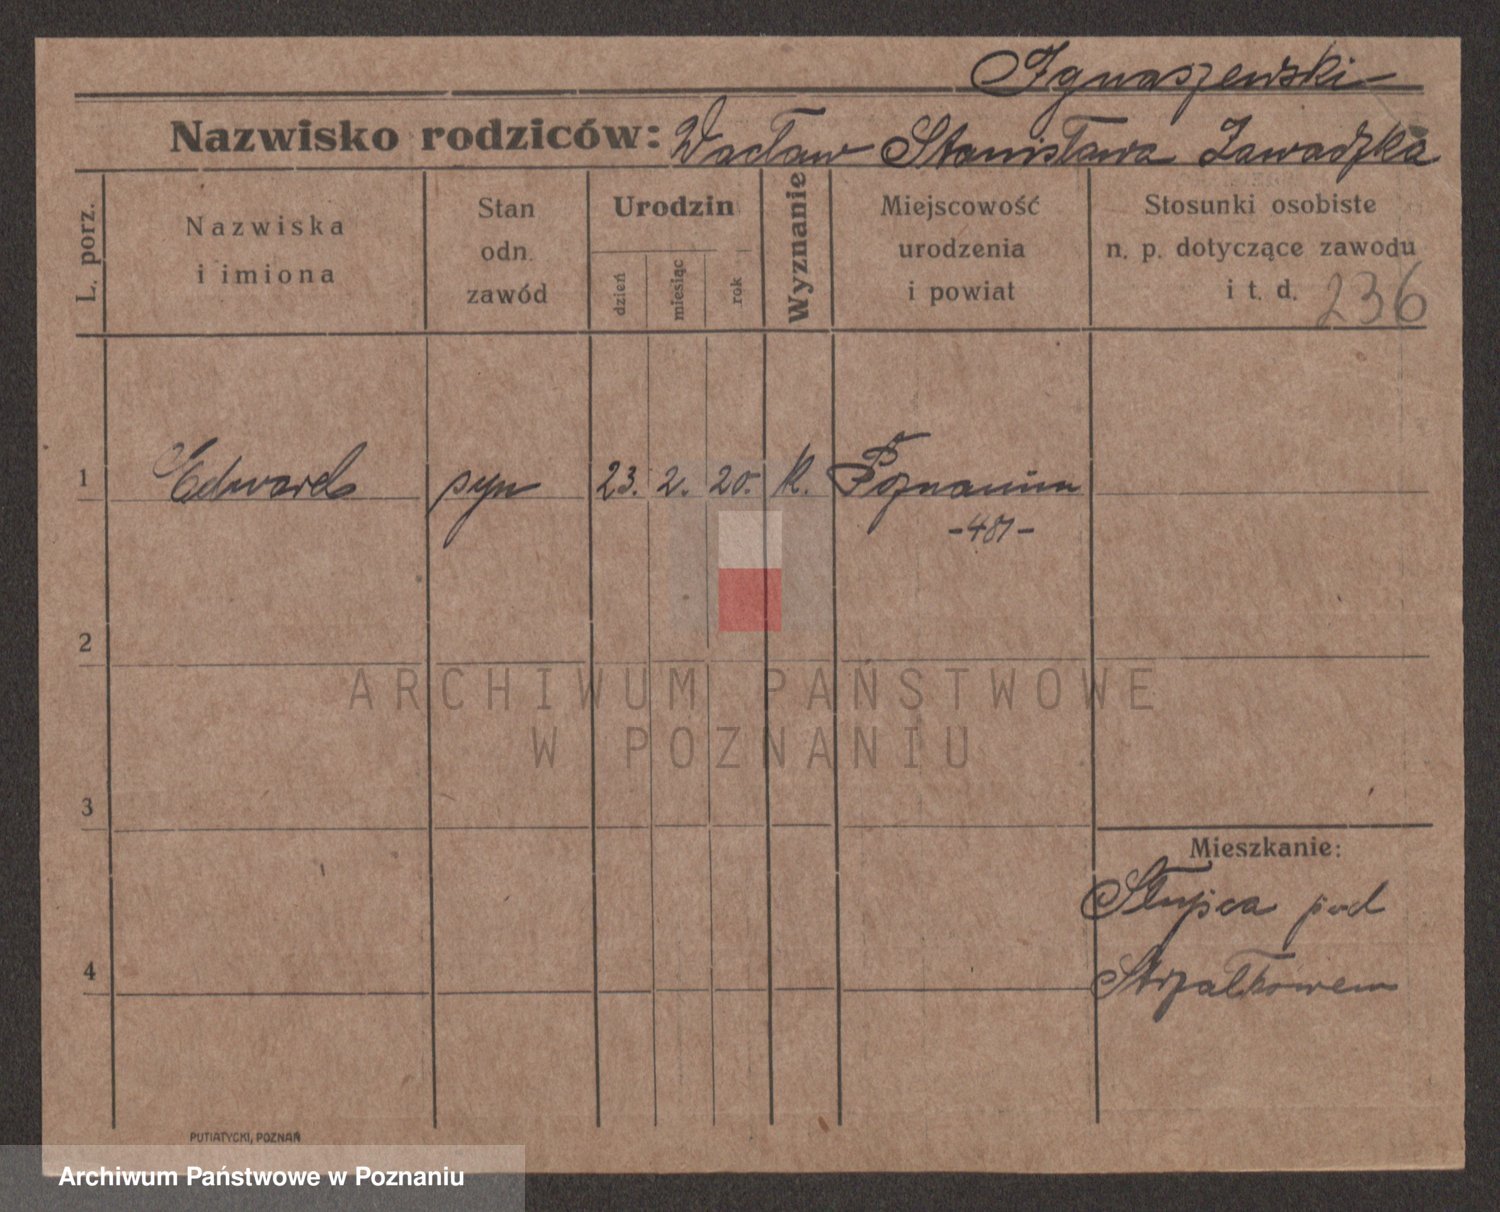 Ignaszewski
Nazwisko rodziców: Wacław Stanisława Zawadzka
L. porz.
Nazwiska
i imiona
Stan
odn.
zawód
Urodzin
dzień
miesiąc
rok
Wyznanie
Miejscowość
urodzenia
i powiat
Stosunki osobiste
n. p. dotyczące zawodu
i t. d.
236
1 Edward syn 23. 2. 20. k. Poznaniu
2
ARCHIWUM PAŃSTWOWE
W POZNANIU
3
Mieszkanie:
Słupca pod
4
Strzałkowem
PUTIATYCKI, POZNAŃ
Archiwum Państwowe w Poznaniu